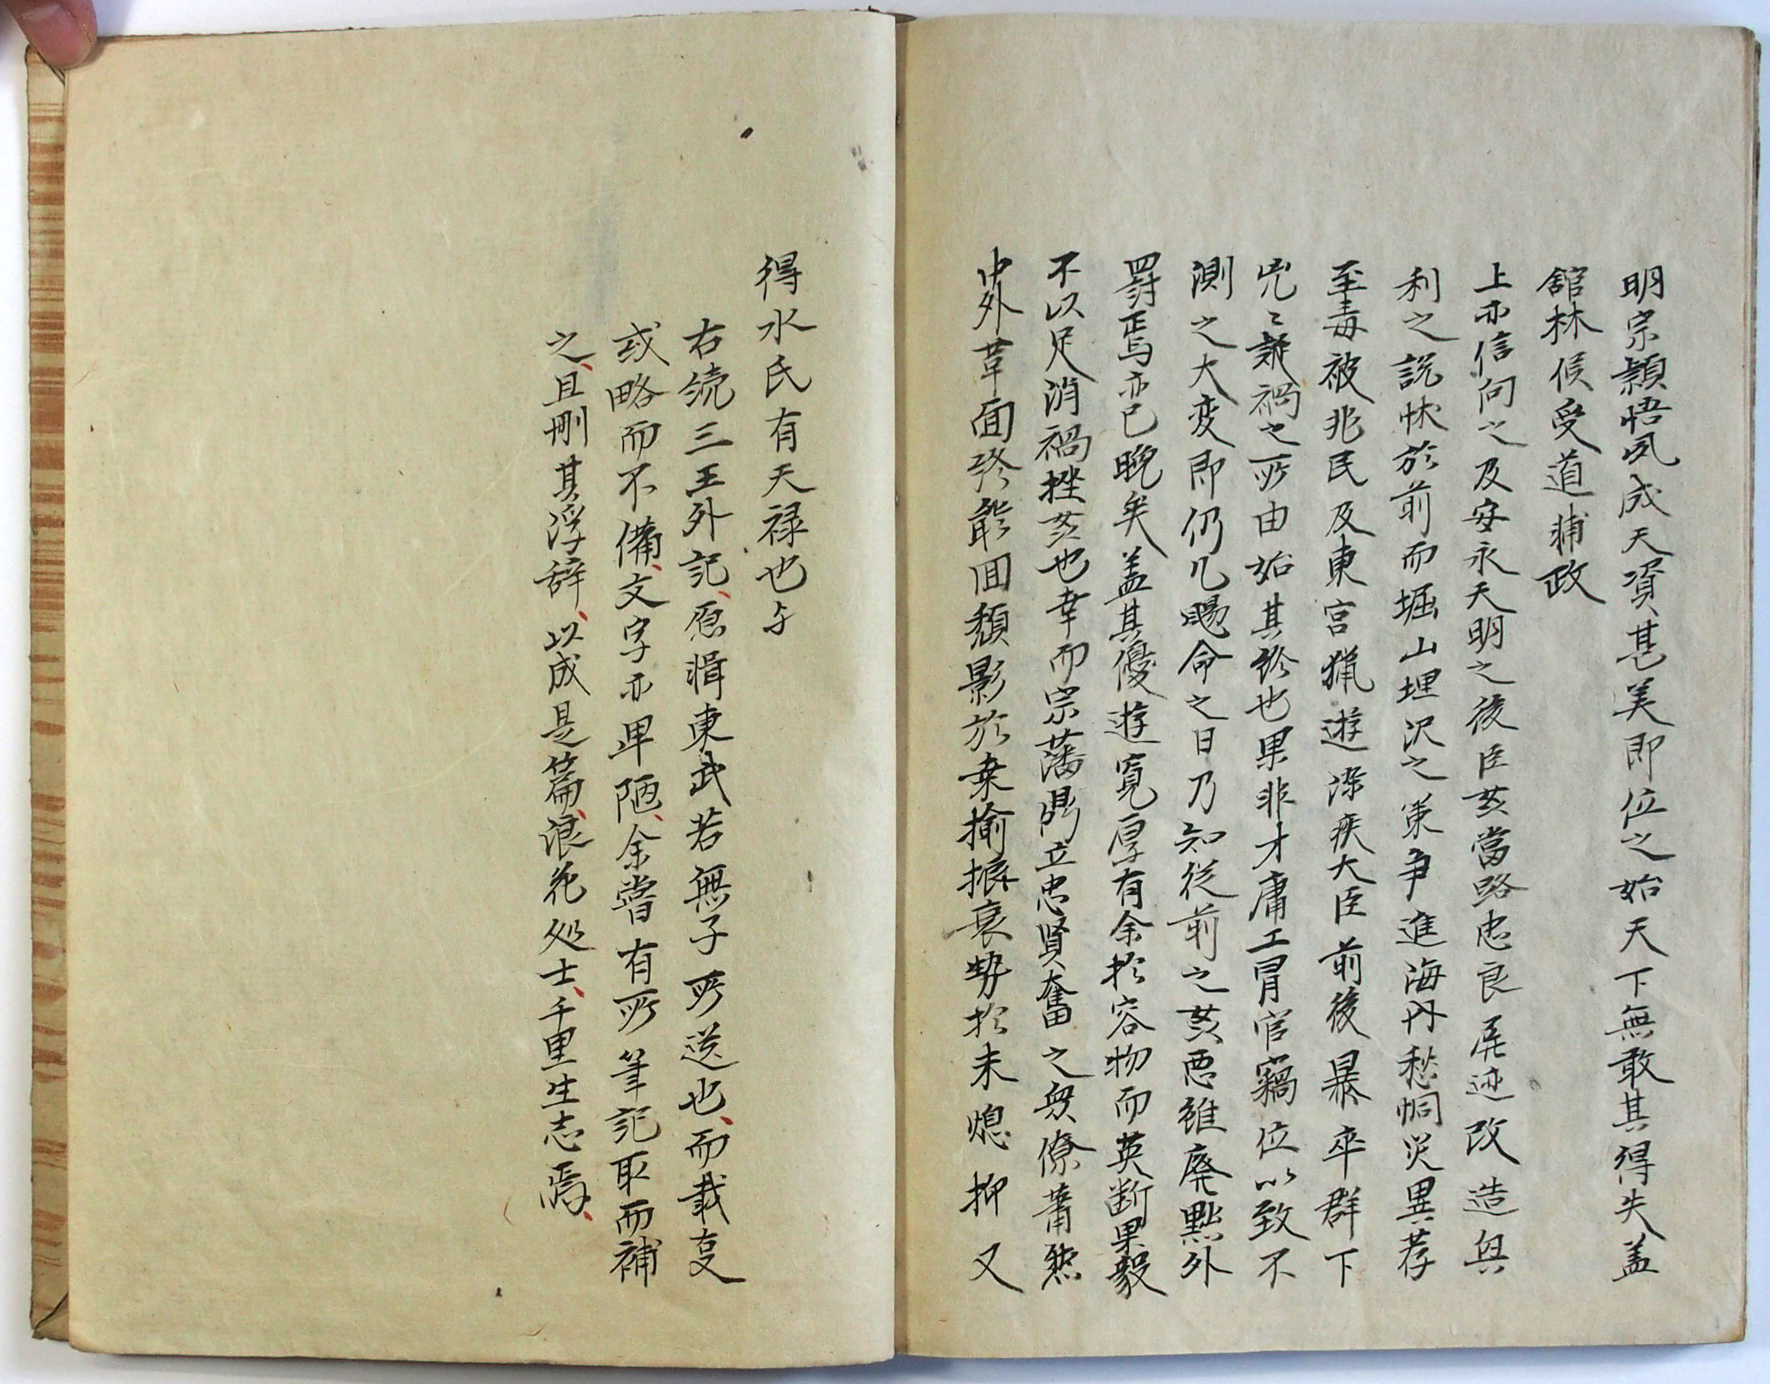 明宗頴悟夙成天資甚美即位之始天下無敢其得失盖
舘林候受道輔政
上亦信向之及安永天明之後臣亥當路忠良屏迹改造與
利之説怏於前而堀山埋沢之策争進海内愁恫災異荐
至毒被兆民及東宮猟遊深疾大臣前後暴卒群下
兇々疑禍之所由始其終也果非才庸工冒官竊位以致不
測之大変即仍几賜命之日乃知従前之亥悪雖廃黜外
罰焉亦已晩矣盖其優遊寛厚有余於容物而英断果毅
不以足消禍挫亥也幸而宗藩鼎立忠賢奮之衆僚莆然
中外革面終能囬頽影於桑揄振衰勢於未熄抑又
得水氏有天禄也与
右続三王外記、原揖東武若無子所送也、而載支
或略而不備、文字亦卑陋、余嘗有所筆記取而補
之、且刪其浮辞、以成是篇、浪花処士、千里生志焉、